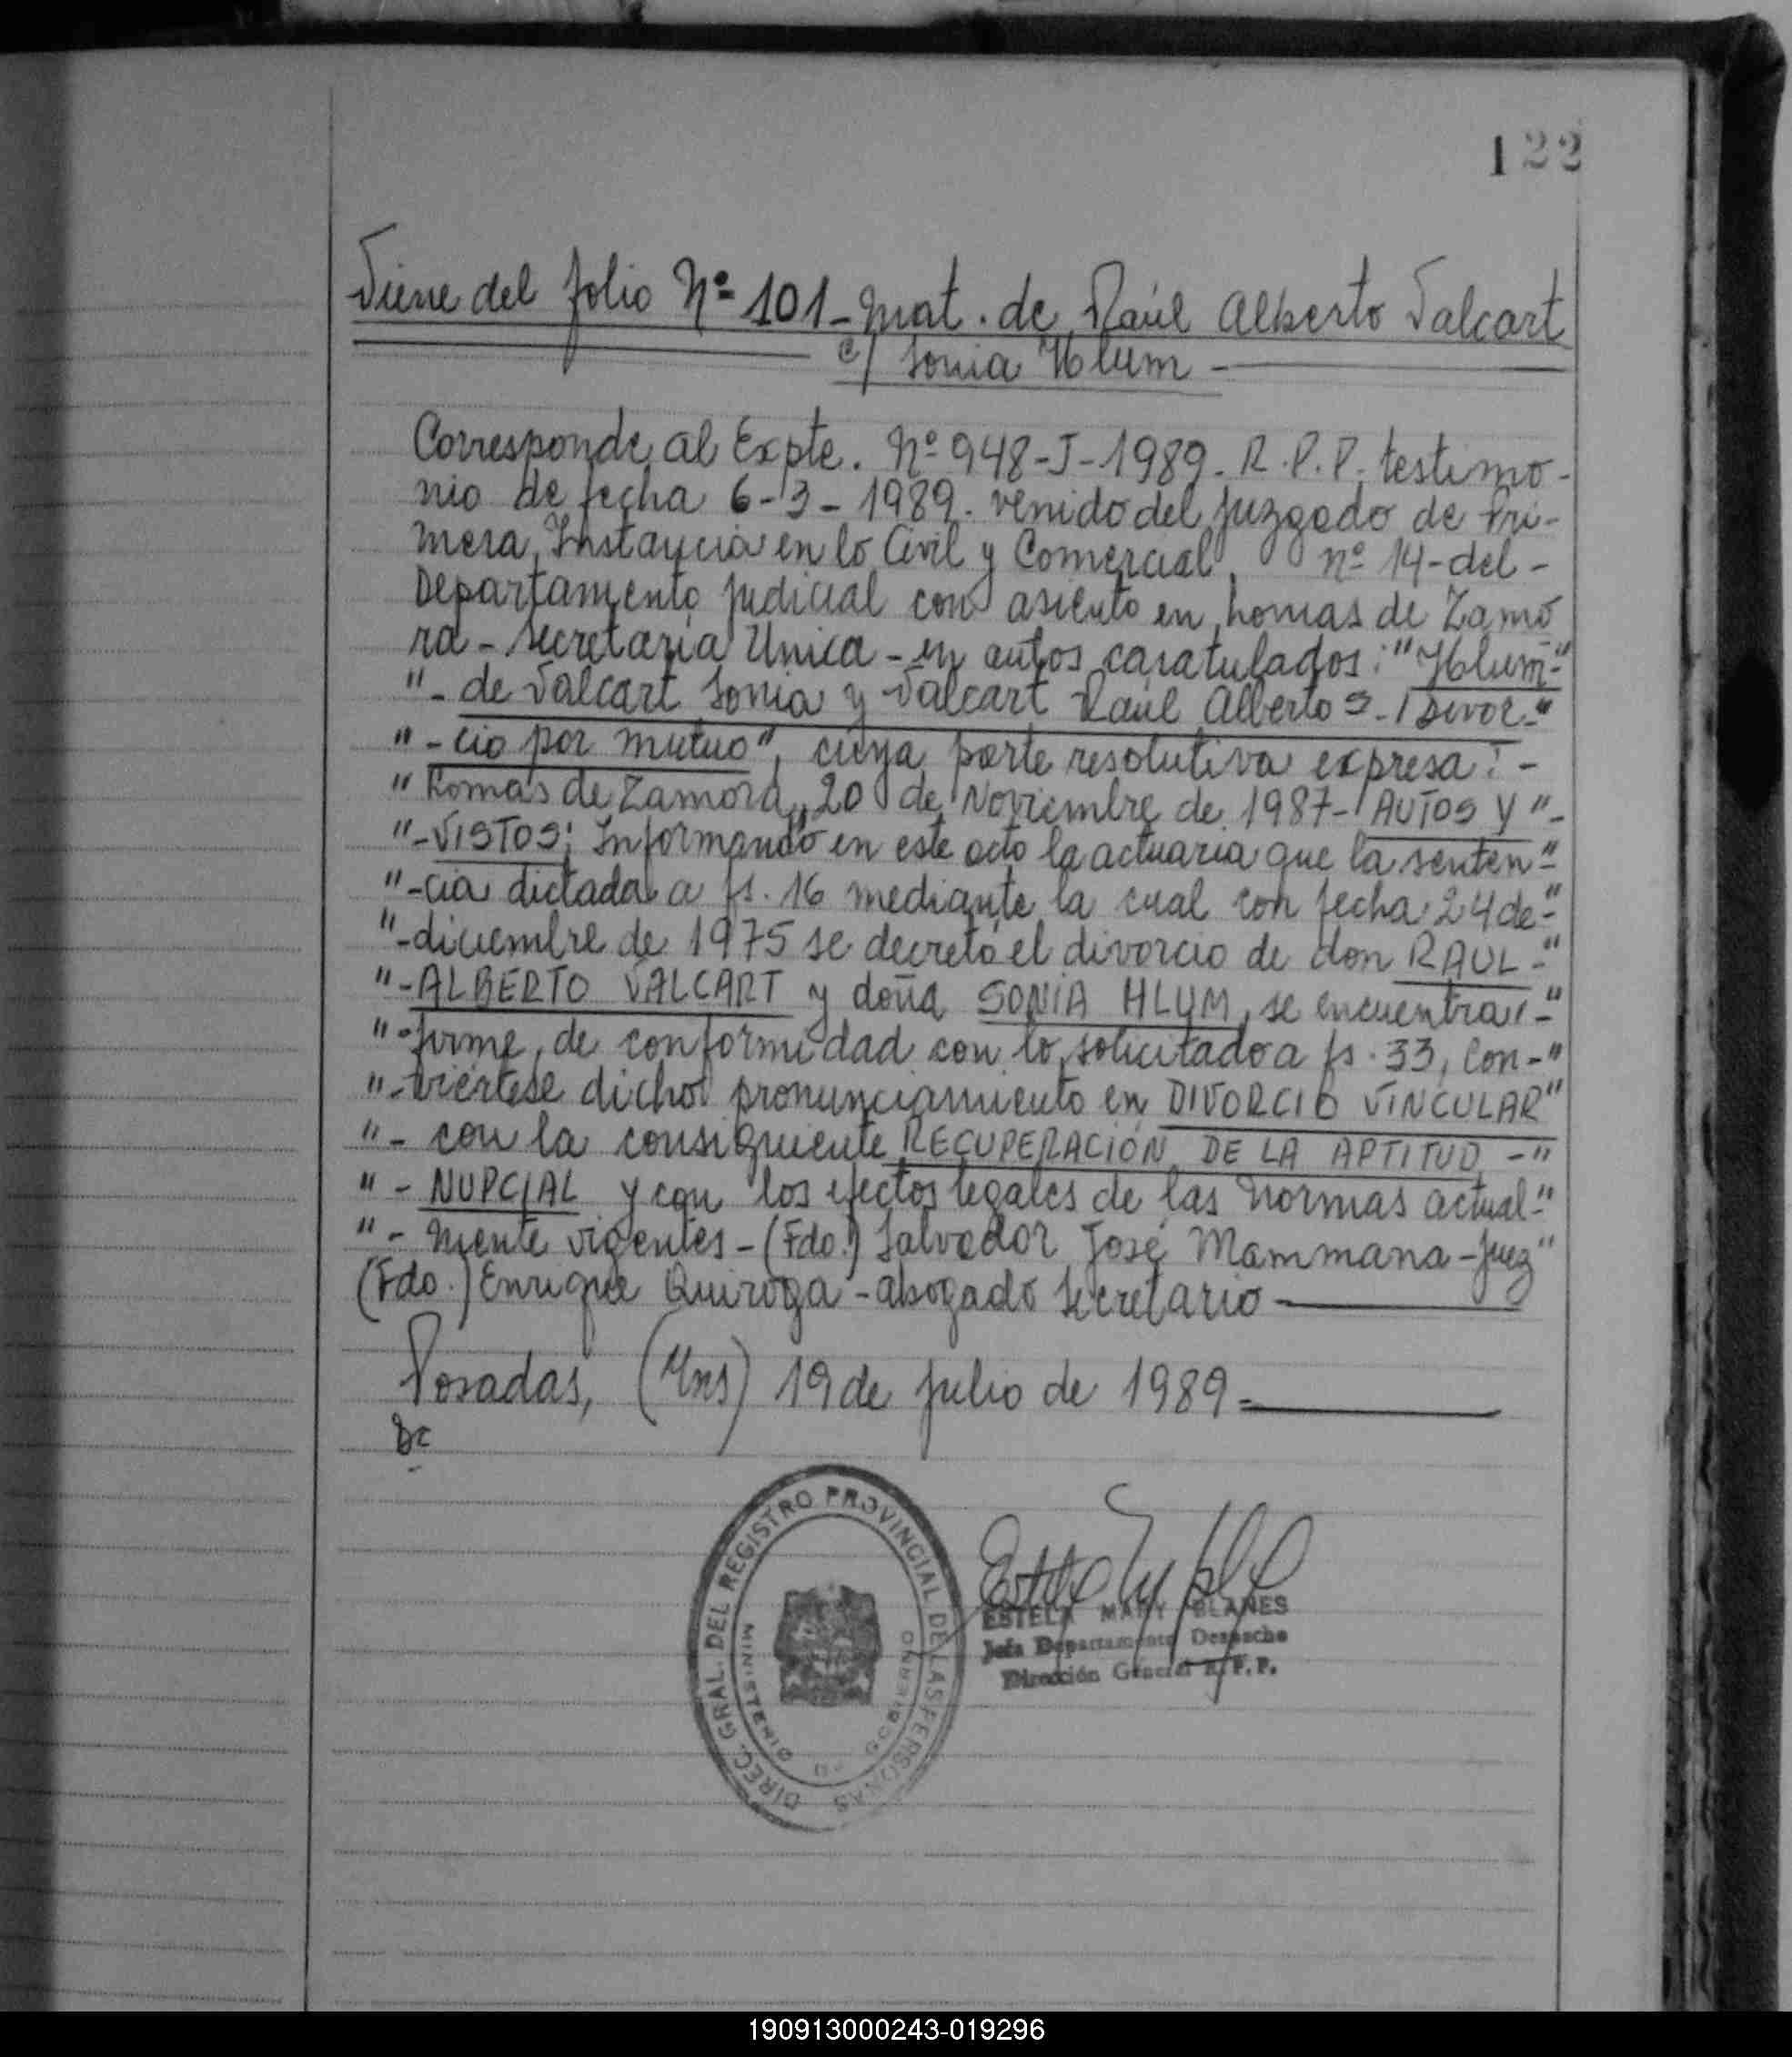 122
Viene del folio Nº 101 - Mat. de Raúl Alberto Valcart
c/ Sonia Hlum -
Corresponde al Expte. Nº 948-J-1989. R.P.P. testimo-
nio de fecha 6-3-1989. venido del Juzgado de Pri-
mera Instancia en lo Civil y Comercial, nº 14 - del -
Departamento Judicial con asiento en Lomas de Zamo
ra - Secretaría Unica - en autos caratulados: "Hlum -"
"- de Valcart Sonia y Valcart Raúl Alberto S/Divor-"
"- cio por mutuo", cuya parte resolutiva expresa: -
"Lomas de Zamora, 20 de Noviembre de 1987 - AUTOS Y "-
"- VISTOS: Informando en este acto la actuaria que la senten-"
"- cia dictada a fs. 16 mediante la cual con fecha 24 de -"
"- diciembre de 1975 se decretó el divorcio de don RAUL -"
"- ALBERTO VALCART y doña SONIA HLUM, se encuentra -"
"- firme, de conformidad con lo solicitado a fs. 33, Con -"
"- viértese dicho pronunciamiento en DIVORCIO VINCULAR"
"- con la consiguiente RECUPERACIÓN DE LA APTITUD -"
"- NUPCIAL y con los efectos legales de las normas actual-"
"- mente vigentes - (Fdo.) Salvador José Mammana - Juez"
(Fdo.) Enrique Quiroga - abogado Secretario
Posadas, (Mns) 19 de Julio de 1989 -
DIREC. GRAL. DEL REGISTRO PROVINCIAL DE LAS PERSONAS
MINISTERIO DE GOBIERNO
ESTELA MARY BLANES
Jefa Departamento Despacho
Dirección General R.P.P.
190913000243-019296